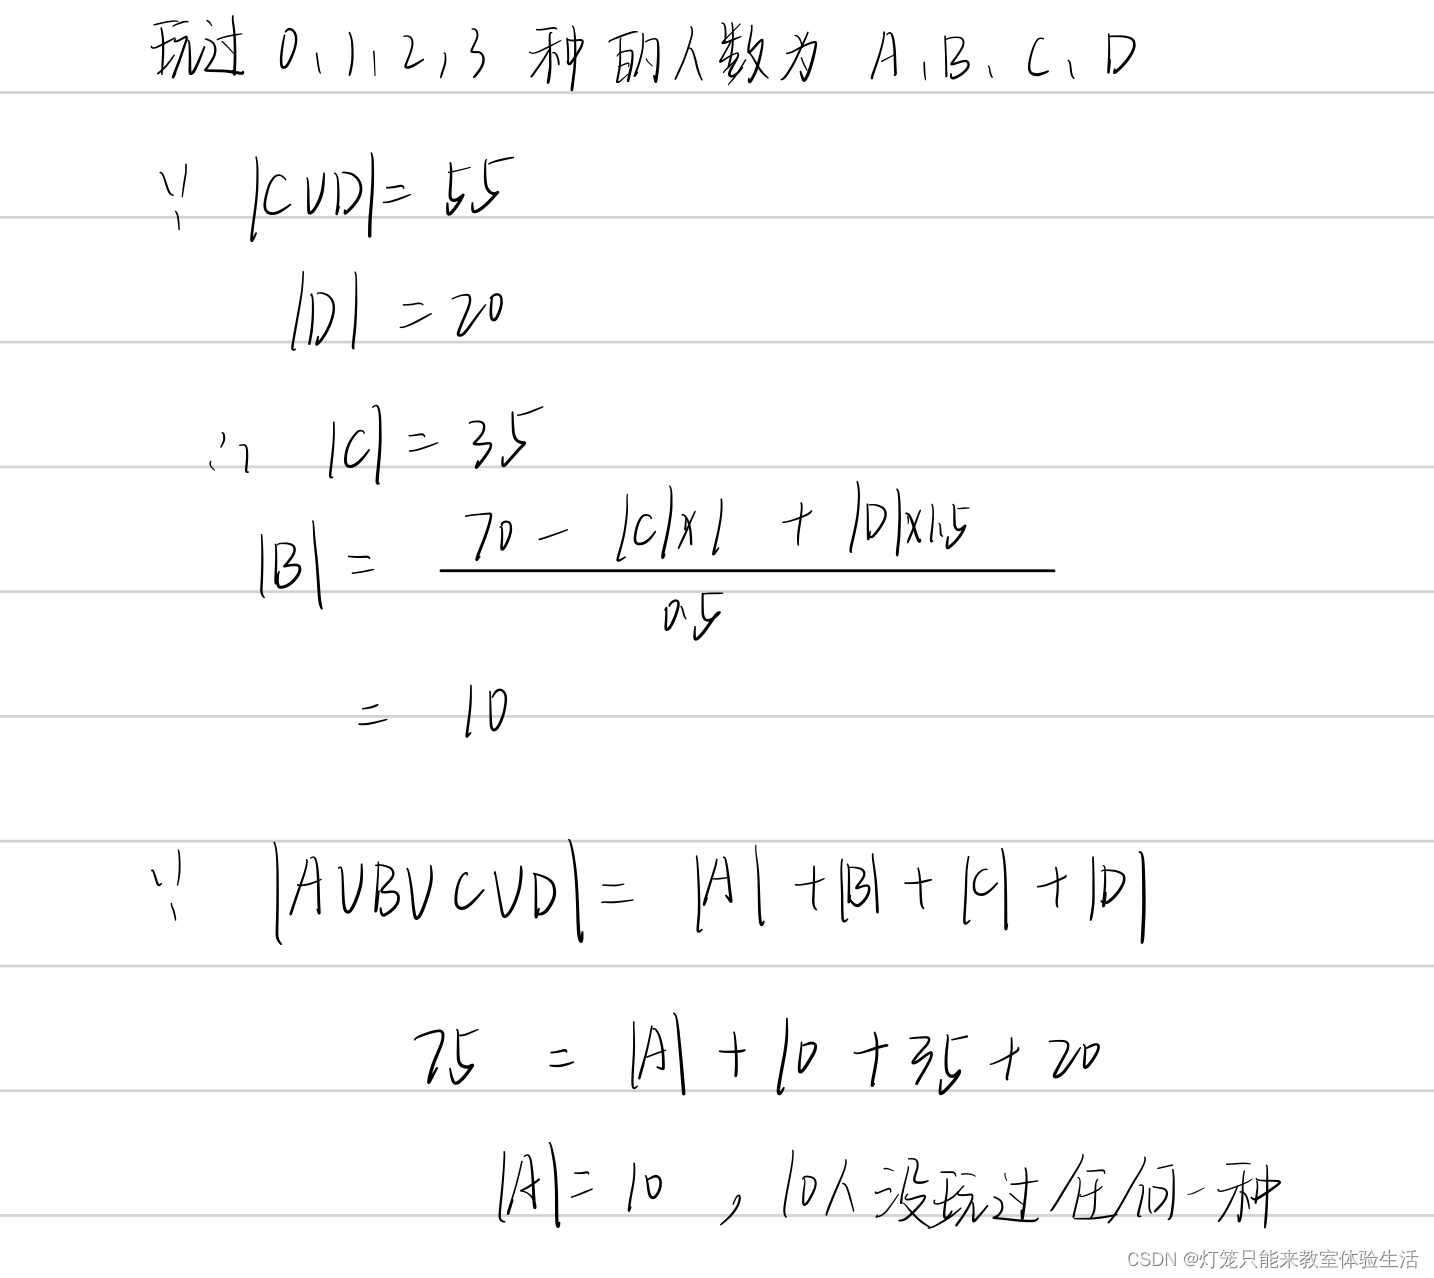 玩过 0, 1, 2, 3 种的人数为 A、B、C、D
∵ |C∪D| = 55
|D| = 20
∴ |C| = 35
|B| = (70 - |C|×1 + |D|×1.5) / 0.5
= 10
∵ |A∪B∪C∪D| = |A| + |B| + |C| + |D|
75 = |A| + 10 + 35 + 20
|A| = 10 , 10人没玩过任何一种
CSDN @灯笼只能来教室体验生活